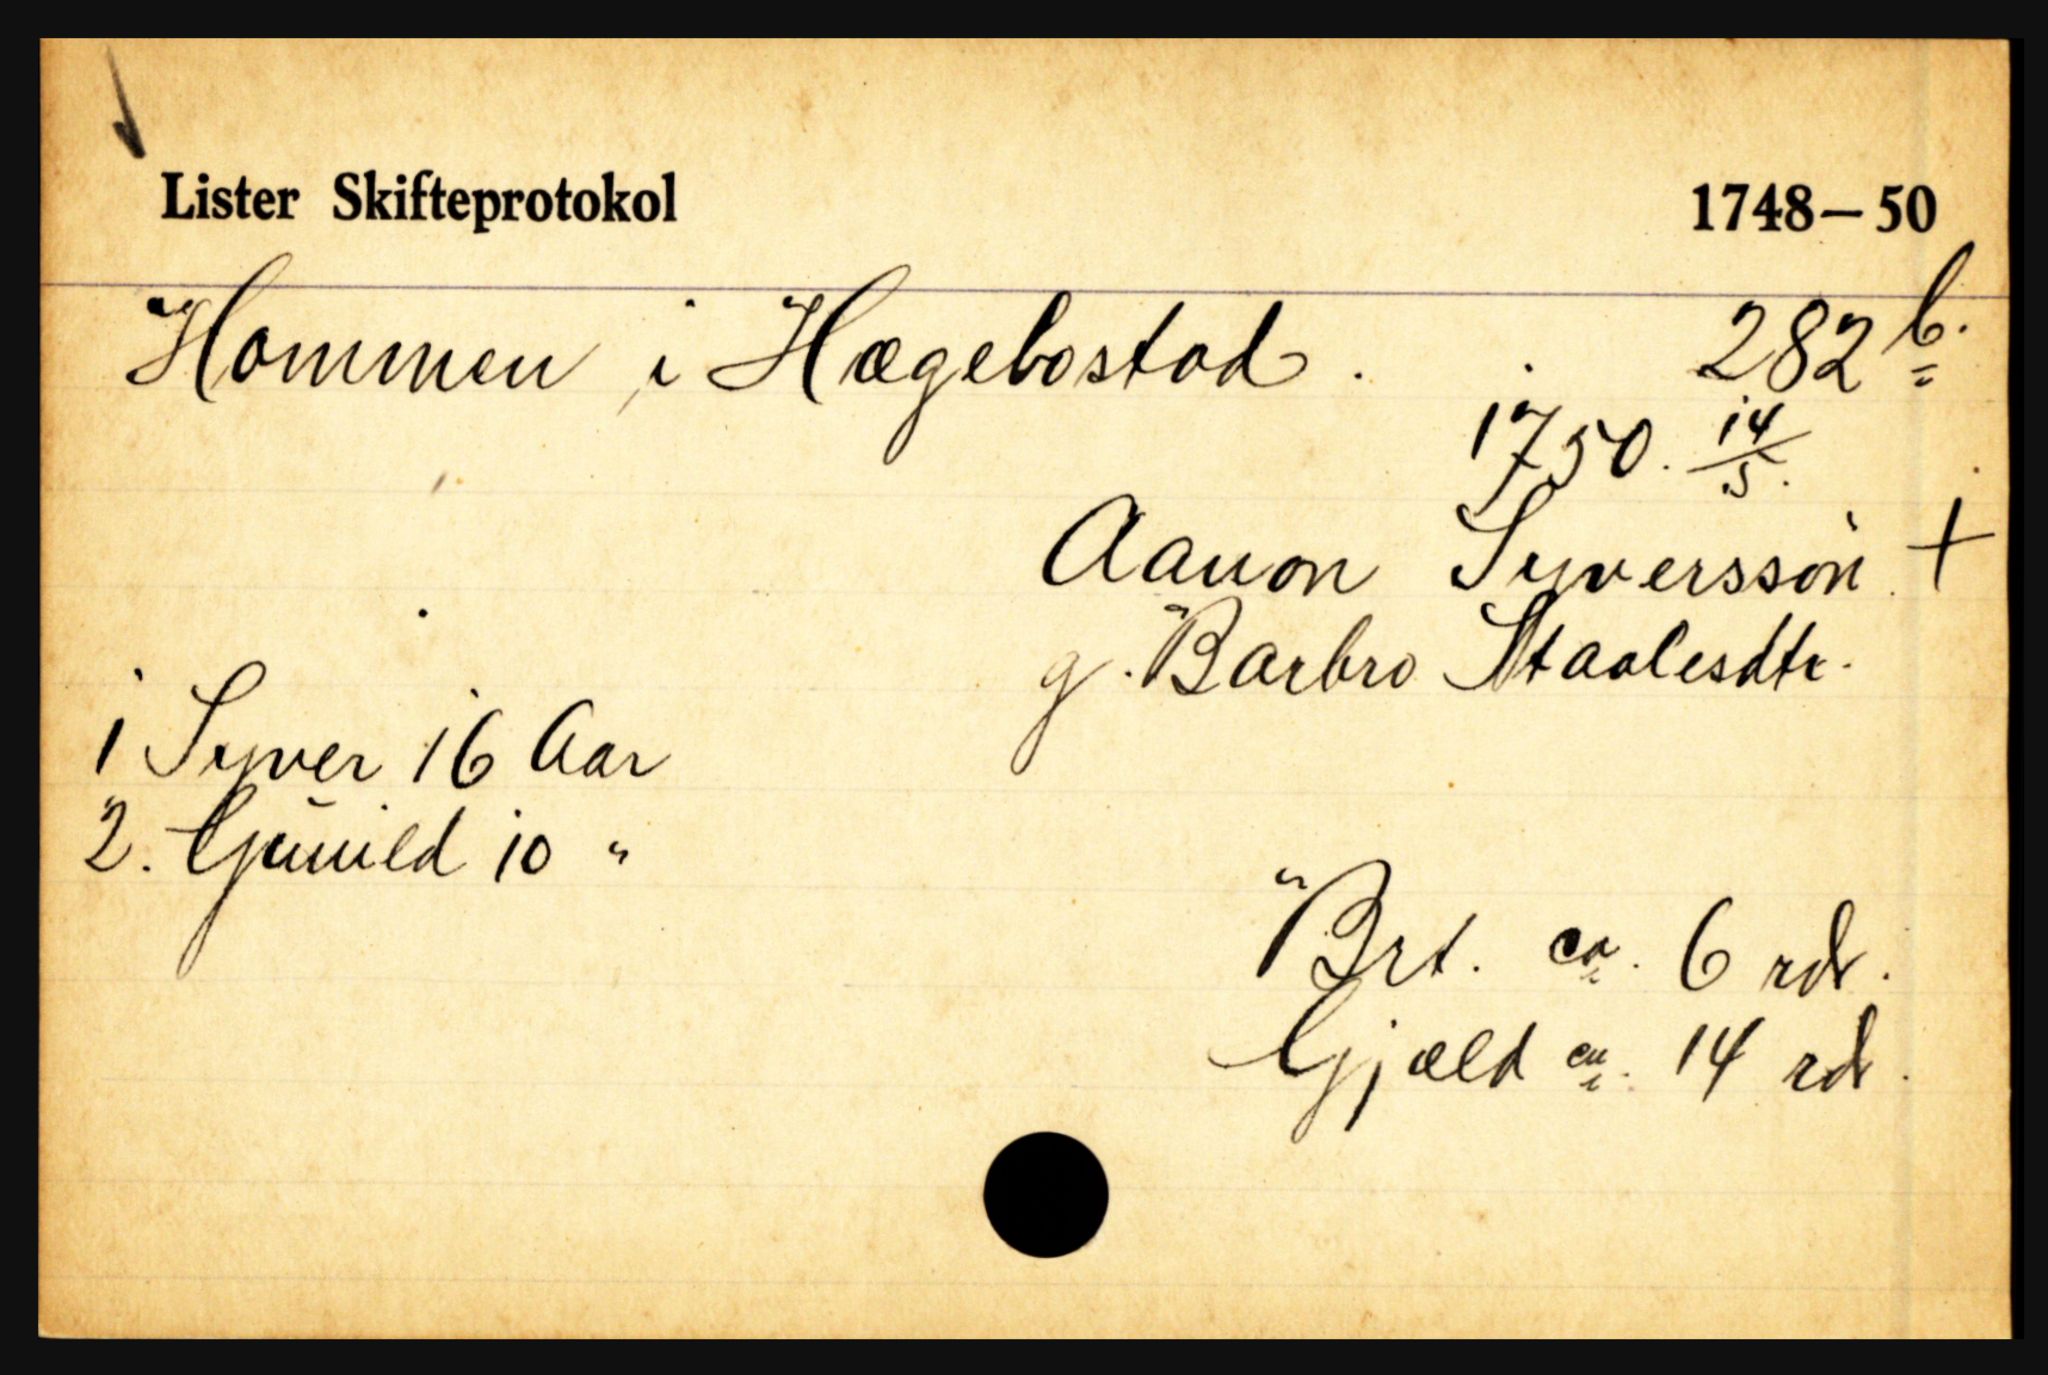 Lister Skifteprotokol 1748—50
Hommen i Hægebostad. 282 b.
1750. 14/5.
Aanon Syversson +
g. Barbro Staalesdtr.
1 Syver 16 Aar
2. Gunild 10 "
Brt. ca. 6 rdr.
Gjæld ca. 14 rdr.